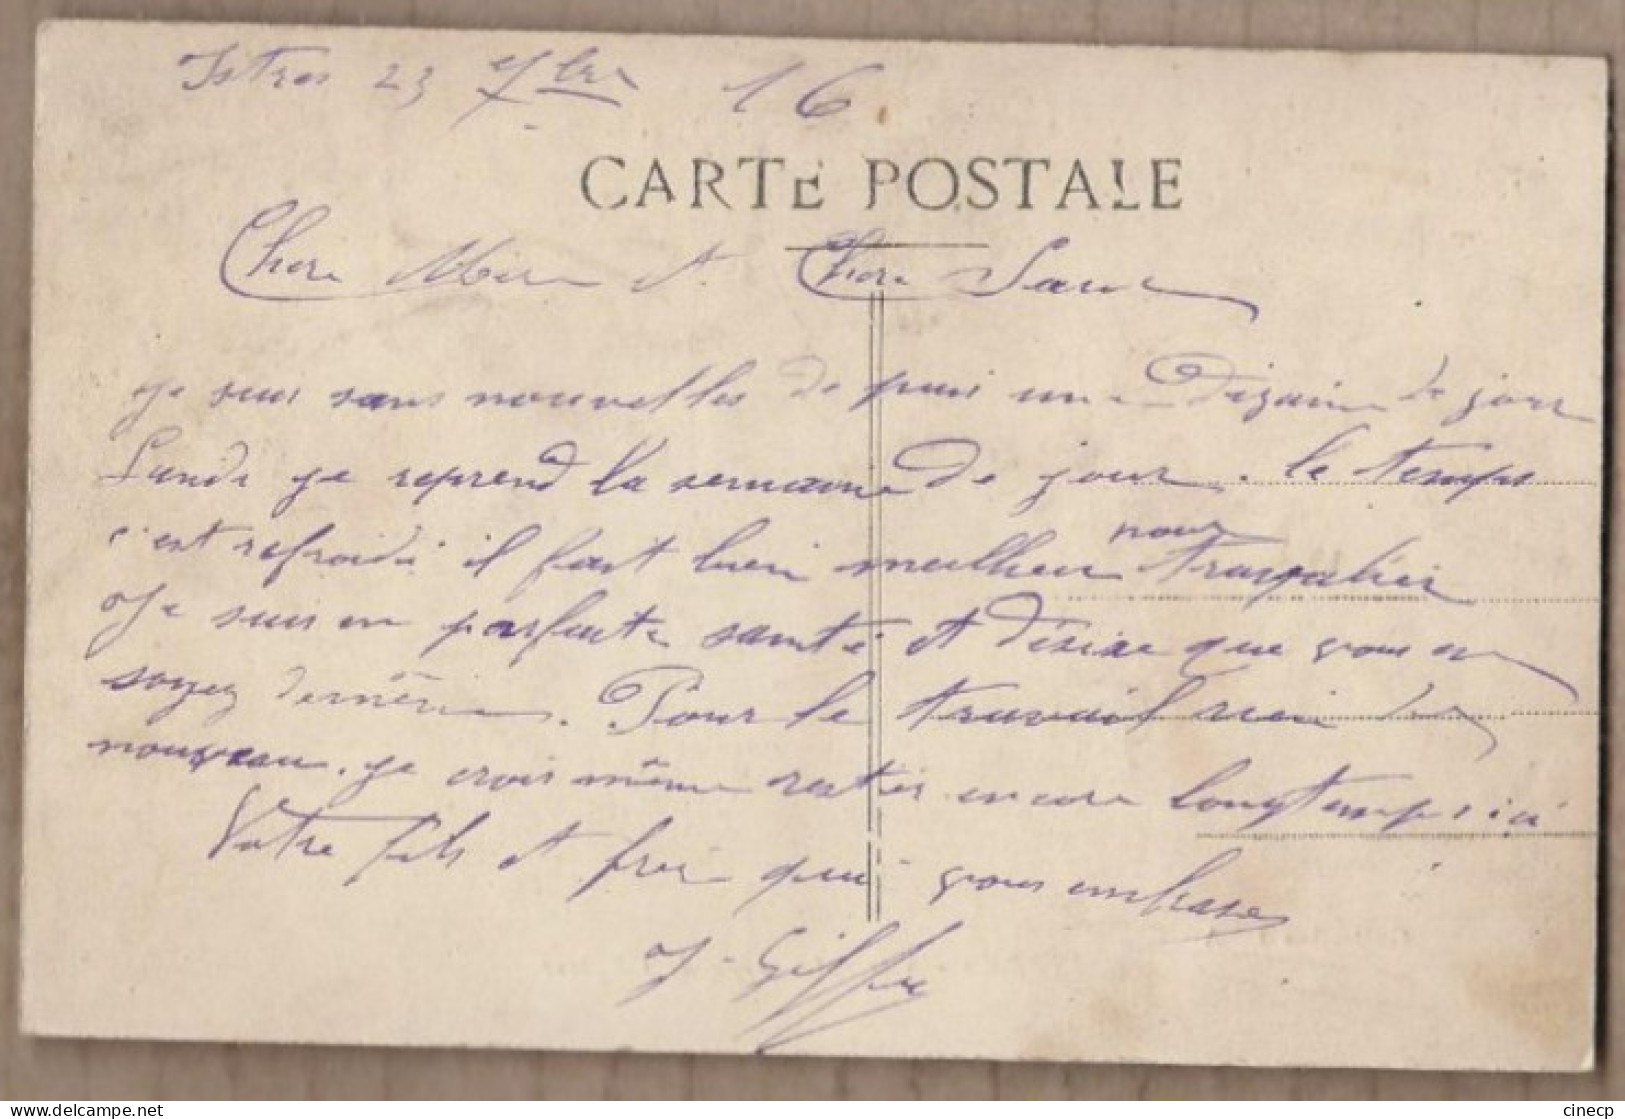 Istres 23 7bre 16
CARTE POSTALE
Chere Mere et Chere Sœur
je suis sans nouvelles de puis une Dizaine de jour
Lundi je reprend la semaine de jour. le temps
c'est refroidi il fait bien meilheur
pour
travalier
Je suis en parfaite santé et désire que vous en
soyez de même. Pour le travail rien de
nouveau. je crois même rester encore longtemps ici
Votre fils et frere qui vous embrasse
J. Giffre
cinecp